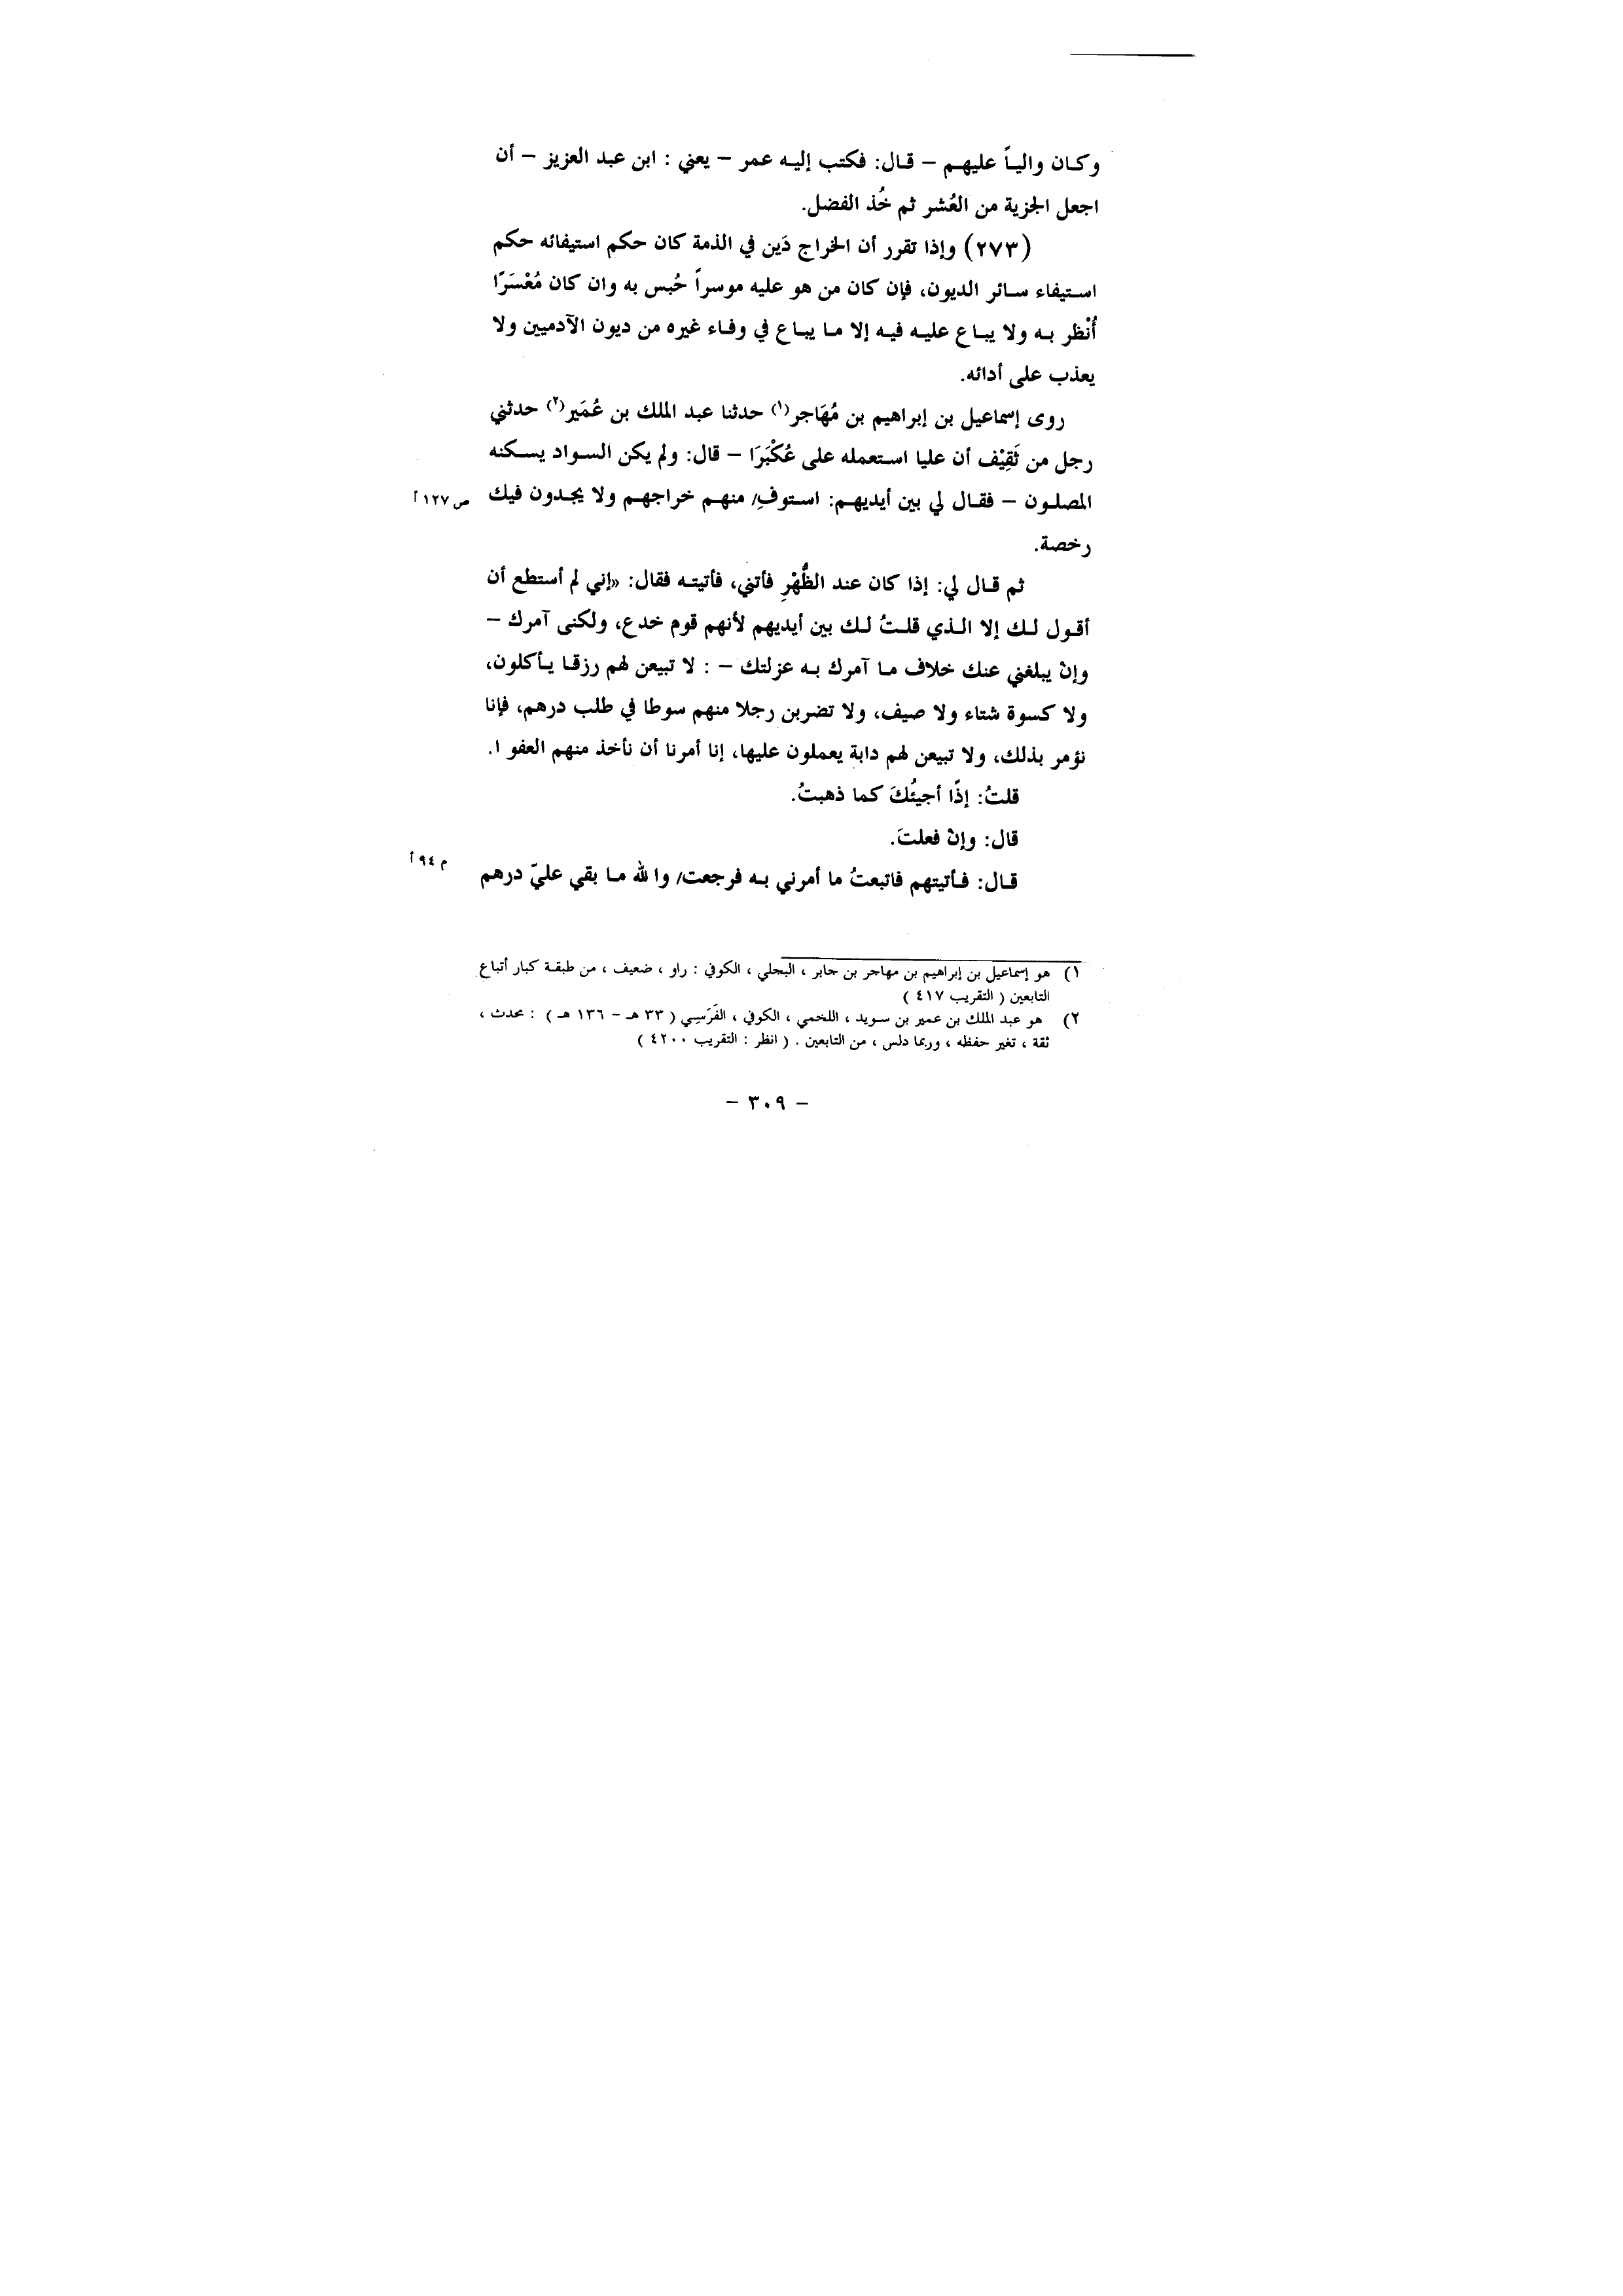 وكـان واليـاً عليهـم – قـال: فكتب إليـه عمر – يعني : ابن عبد العزيز – أن
اجعل الجزية من العُشر ثم خُذ الفضل.
(٢٧٣) وإذا تقرر أن الخراج دَين في الذمة كان حكم استيفائه حكم
استيفاء سـائر الديون، فإن كان من هو عليه موسراً حُبس به وان كان مُعْسَرًا
أُنْظر بـه ولا يبـاع عليـه فيـه إلا مـا يبـاع في وفـاء غيره من ديون الآدميين ولا
يعذب على أدائه.
روى إسماعيل بن إبراهيم بن مُهَاجر(١) حدثنا عبد الملك بن عُمَير(٢) حدثني
رجل من ثَقِيْف أن عليا استعمله على عُكْبَرَا – قال: ولم يكن السـواد يسـكنه
المصلـون – فقـال لي بين أيديهـم: استـوفِ/ منهـم خراجهـم ولا يجـدون فيك
ص ١٢٧ أ
رخصة.
ثم قـال لي: إذا كان عند الظُّهْرِ فأتني، فأتيتـه فقال: «إني لم أستطع أن
أقـول لـك إلا الـذي قلـتُ لـك بين أيديهم لأنهم قوم خدع، ولكنى آمرك –
وإنْ يبلغني عنك خلاف مـا آمرك بـه عزلتك – : لا تبيعن لهم رزقـا يـأكلون،
ولا كسوة شتاء ولا صيف، ولا تضربن رجلا منهم سوطا في طلب درهم، فإنا
نؤمر بذلك، ولا تبيعن لهم دابة يعملون عليها، إنا أمرنا أن نأخذ منهم العفو ا.
قلتُ: إذًا أجيئُكَ كما ذهبتُ.
قال: وإنْ فعلتَ.
م ٩٤ أ
قـال: فـأتيتهم فاتبعتُ ما أمرني بـه فرجعت/ وا لله مـا بقي عليّ درهم
١) هو إسماعيل بن إبراهيم بن مهاجر بن جابر ، البجلي ، الكوفي : راو ، ضعيف ، من طبقـة كبار أتباع
التابعين ( التقريب ٤١٧ )
٢) هو عبد الملك بن عمير بن سـويد ، اللخمي ، الكوفي ، الفَرَسِـي ( ٣٣ هـ – ١٣٦ هـ ) : محدث ،
ثقة ، تغير حفظه ، وربما دلس ، من التابعين . ( انظر : التقريب ٤٢٠٠ )
– ٣٠٩ –